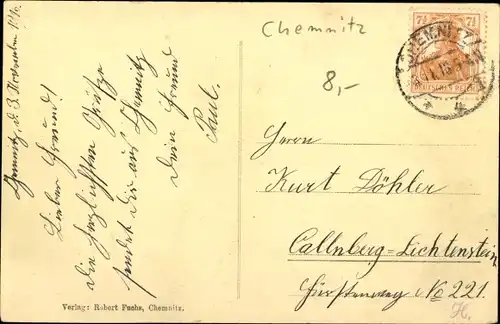 Chemnitz, d. 3. November 1916.
Lieber Freund!
Die herzlichsten Grüße
sendet Dir aus Chemnitz
Dein Freund
Paul.
Verlag: Robert Fuchs, Chemnitz.
Chemnitz
8,-
7½ 7½
DEUTSCHES REICH
CHEMNITZ
Herrn
Kurt Döhler
Callnberg=Lichtenstein
Fürstenweg No 221.